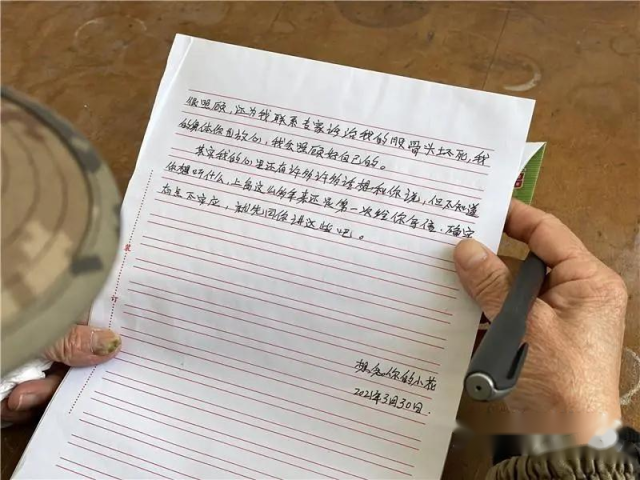 很照顾，还为我联系专家诊治我的股骨头坏死，我
的身体你且放心，我会照顾好自己的。
其实我的心里还有许多许多话想和你说，但不知道
你想听什么，上岛这么多年来还是第一次给你写信，确实
有点不适应，就先同你讲这些吧。
装
订
想念你的小花
2021年3月30日